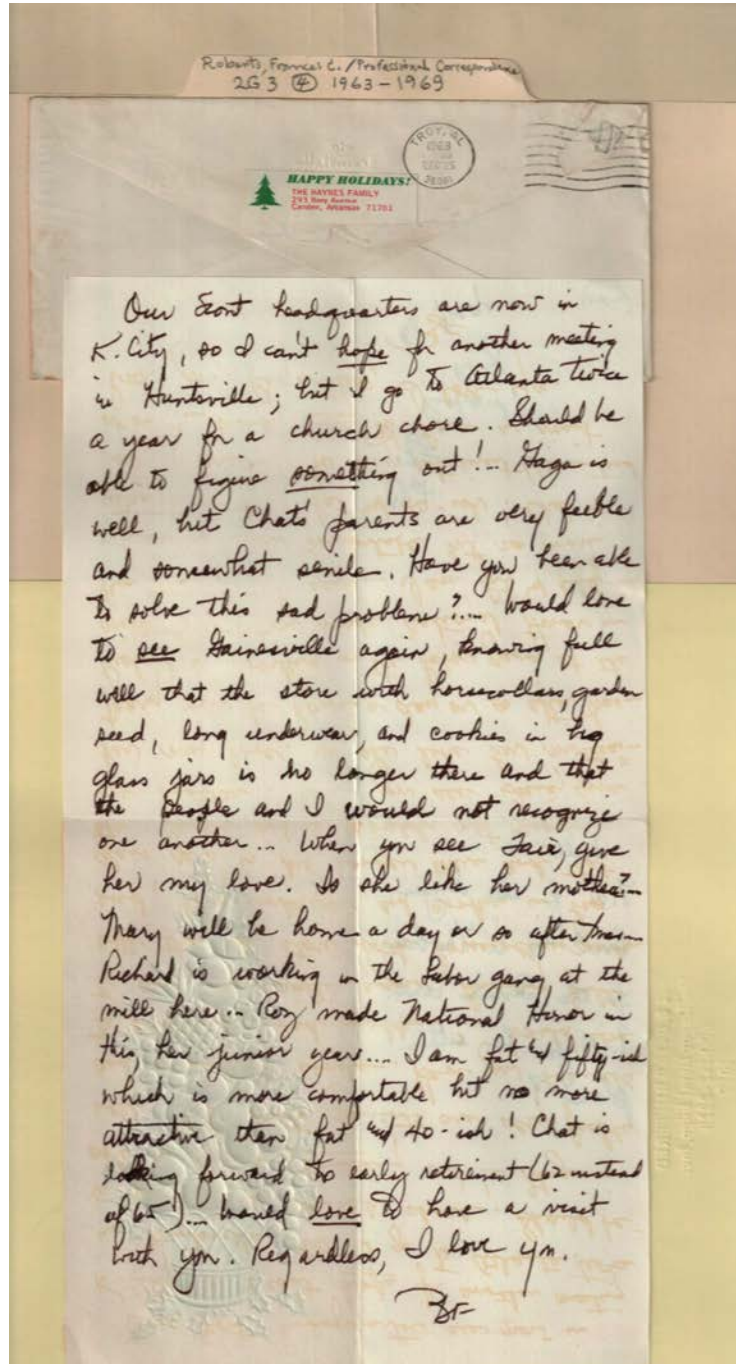 Roberts, Frances C. / Professional Correspondence
2G 3 ④ 1963-1969
TROY, AL
HAPPY HOLIDAYS!
THE HAYNES FAMILY
293 Avenue
Camden, Arkansas 71701
Our Scout headquarters are now in
K. City, so I can't hope for another meeting
in Huntsville; but I go to Atlanta twice
a year for a church chore. Should be
able to figure something out!... Gaga is
well, but Chat's parents are very feeble
and somewhat senile. Have you been able
to solve this sad problem?... Would love
to see Gainesville again, knowing full
well that the store with horsecollars, garden
seed, long underwear, and cookies in big
glass jars is no longer there and that
the people and I would not recognize
one another... When you see Fair, give
her my love. Is she like her mother?...
Mary will be home a day or so after Xmas...
Richard is working in the labor gang at the
mill here... Roz made National Honor in
this, her junior year.... I am fat and fifty-ish
which is more comfortable but no more
attractive than fat and 40-ish! Chat is
looking forward to early retirement (62 instead
of 65)... Would love to have a visit
with you. Regardless, I love you.